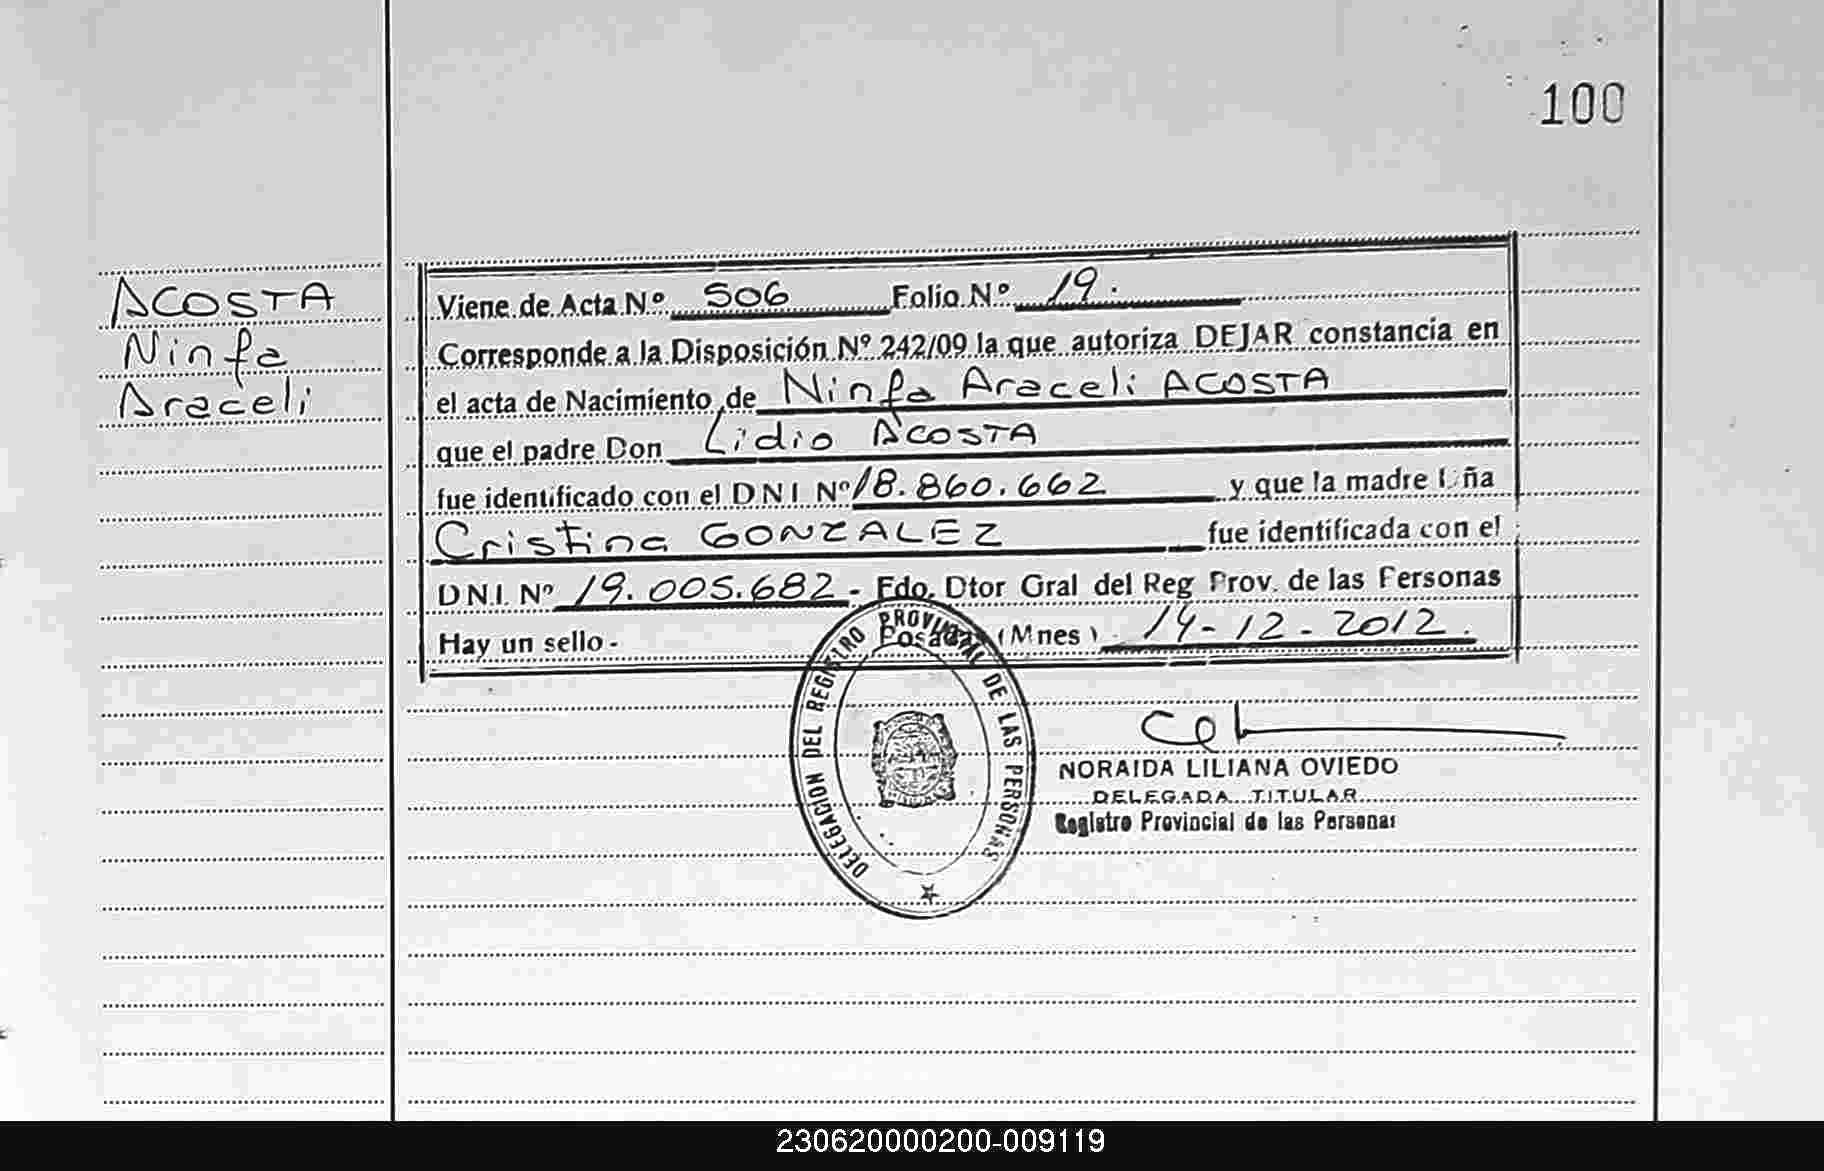 100
ACOSTA
Ninfa
Araceli
Viene de Acta Nº 506 Folio Nº 19.
Corresponde a la Disposición Nº 242/09 la que autoriza DEJAR constancia en
el acta de Nacimiento de Ninfa Araceli ACOSTA
que el padre Don Lidio ACOSTA
fue identificado con el DNI Nº 18.860.662 y que la madre
Cristina GONZALEZ fue identificada con el
D.N.I. Nº 19.005.682 - Fdo. Dtor Gral del Reg Prov. de las Personas
Hay un sello - Posadas (Mnes) 14-12-2012.
DELEGACION DEL REGISTRO PROVINCIAL DE LAS PERSONAS
NORAIDA LILIANA OVIEDO
DELEGADA TITULAR
Registro Provincial de las Personas
230620000200-009119